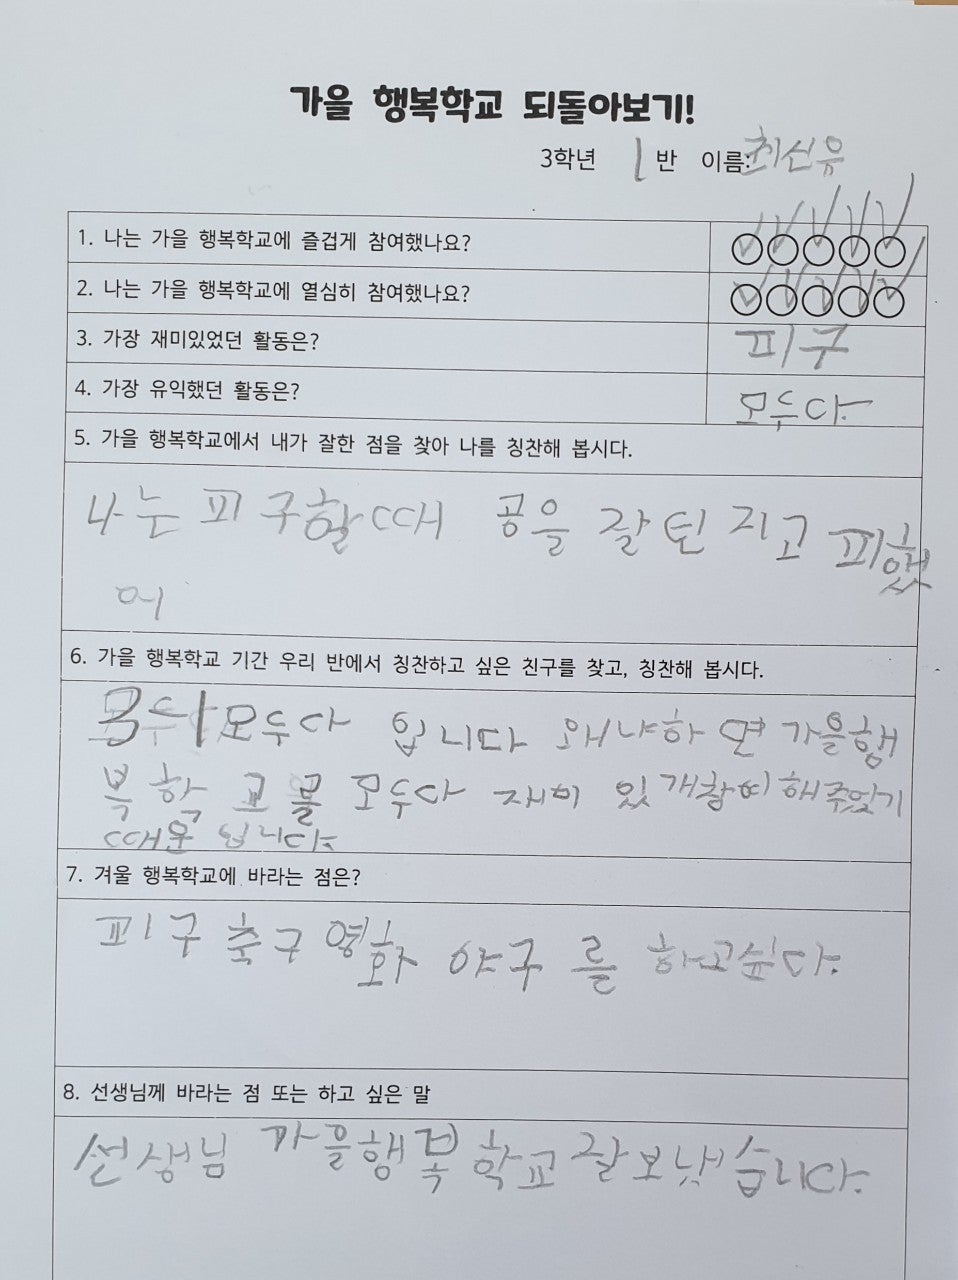 가을 행복학교 되돌아보기!
3학년 1 반 이름: 최신유
1. 나는 가을 행복학교에 즐겁게 참여했나요?
2. 나는 가을 행복학교에 열심히 참여했나요?
3. 가장 재미있었던 활동은? 피구
4. 가장 유익했던 활동은? 모두다.
5. 가을 행복학교에서 내가 잘한 점을 찾아 나를 칭찬해 봅시다.
나는 피구할때 공을 잘 던지고 피했
어
6. 가을 행복학교 기간 우리 반에서 칭찬하고 싶은 친구를 찾고, 칭찬해 봅시다.
모두다 입니다 왜냐하면 가을행
복학교를 모두다 재미있개참여해주었기
때문입니다.
7. 겨울 행복학교에 바라는 점은?
피구 축구 영화 야구를 하고싶다.
8. 선생님께 바라는 점 또는 하고 싶은 말
선생님 가을행복학교 잘보냈습니다.